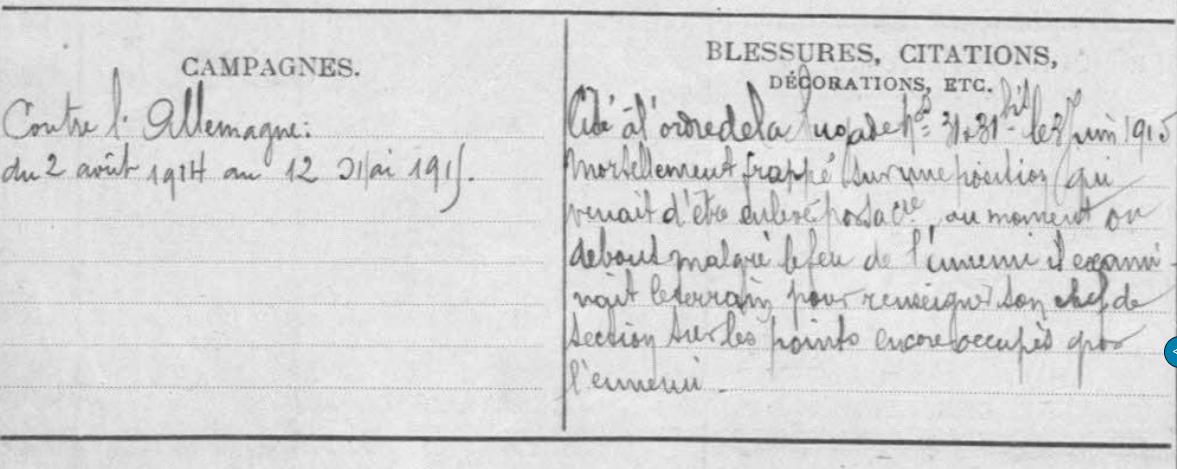 CAMPAGNES.
Contre l'Allemagne:
du 2 août 1914 au 12 Mai 1915.
BLESSURES, CITATIONS,
DÉCORATIONS, ETC.
Cité à l'ordre de la le Juin 1915
Mortellement frappé sur une position qui
venait d'être enlevé par sa Cie, au moment ou
debout malgré le feu de l'ennemi il exami-
nait le terrain pour renseigner son chef de
section sur les points encore occupés par
l'ennemi.